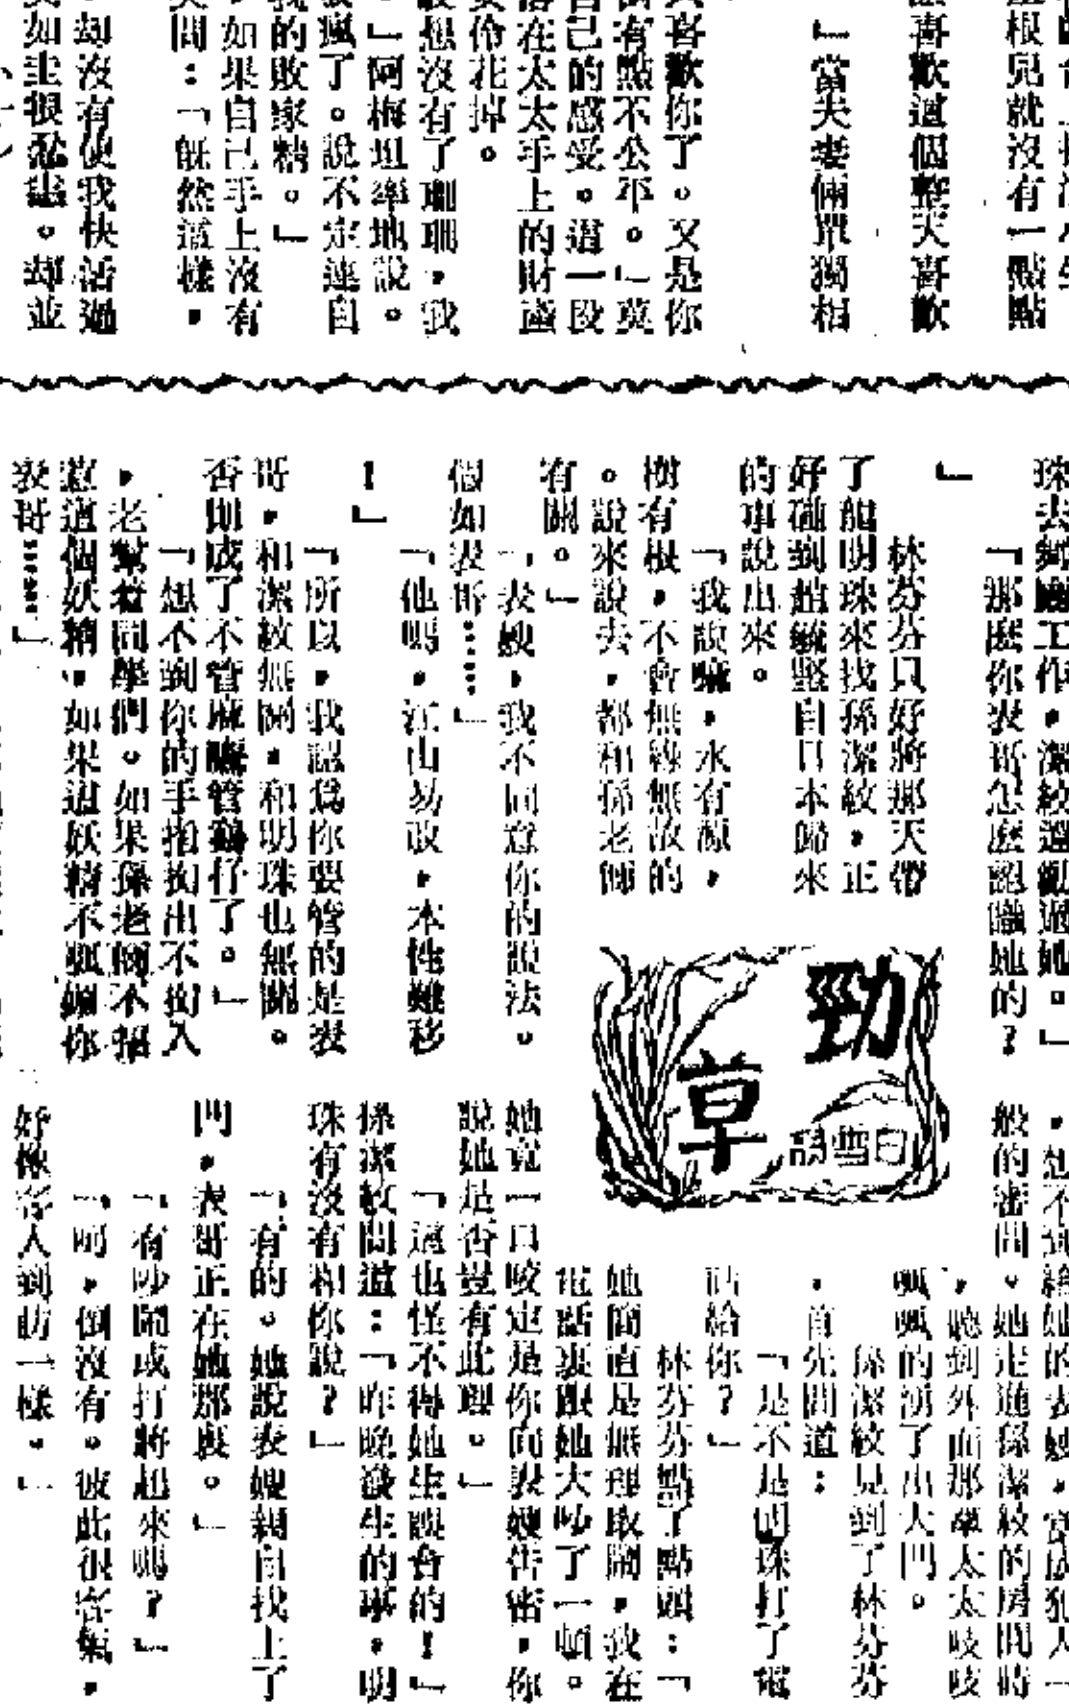 根兒就沒有一點點
喜歡這個整天喜歡
」當夫妻倆單獨相
喜歡你了。又是你
有點不公平。」莫
自己的感受。這一段
落在太太手上的財產
伶花掉。
想沒有了珊珊,我
」阿梅坦率地說。
瘋了。說不定連自
我的敗家精。」
如果自己手上沒有
問:「既然這樣,
却沒有使我快活過
如圭很忿恚。却並
珠去舞廳工作,潔紋還勸過她。」
「那麼你表哥怎麼認識她的?
」
林芬芬只好將那天帶
了龍明珠來找孫潔紋,正
好碰到趙毓堅自日本歸來
的事說出來。
「我說嘛,水有源,
樹有根,不會無緣無故的
。說來說去,都和孫老師
有關。」
「表嫂,我不同意你的說法。
個如表哥……」
「他嗎,江山易改,本性難移
!」
「所以,我認爲你要管的是表
哥,和潔紋無關,和明珠也無關。
否則成了不管麻鷹管鷄仔了。」
「想不到你的手指拗出不拗入
,老幫着同學們。如果孫老師不招
惹這個妖精,如果這妖精不狐媚你
表哥……」
勁草
白雪詞
,想不到給她的表嫂,當成犯人一
般的審問。她走進孫潔紋的房間時
,聽到外面那羣太太吱吱
喳喳的湧了出大門。
孫潔紋見到了林芬芬
,首先問道:
「是不是明珠打了電
話給你?」
林芬芬點了點頭:「
她簡直是無理取鬧,我在
電話裏跟她大吵了一頓。
她竟一口咬定是你向表嫂告密,你
說她是否豈有此理。」
「這也怪不得她生誤會的!」
孫潔紋問道:「昨晚發生的事,明
珠有沒有和你說?」
「有的。她說表嫂親自找上了
門,表哥正在她那裏。」
「有吵鬧或打將起來嗎?」
「啊,倒沒有。彼此很客氣,
好像客人到訪一樣。」